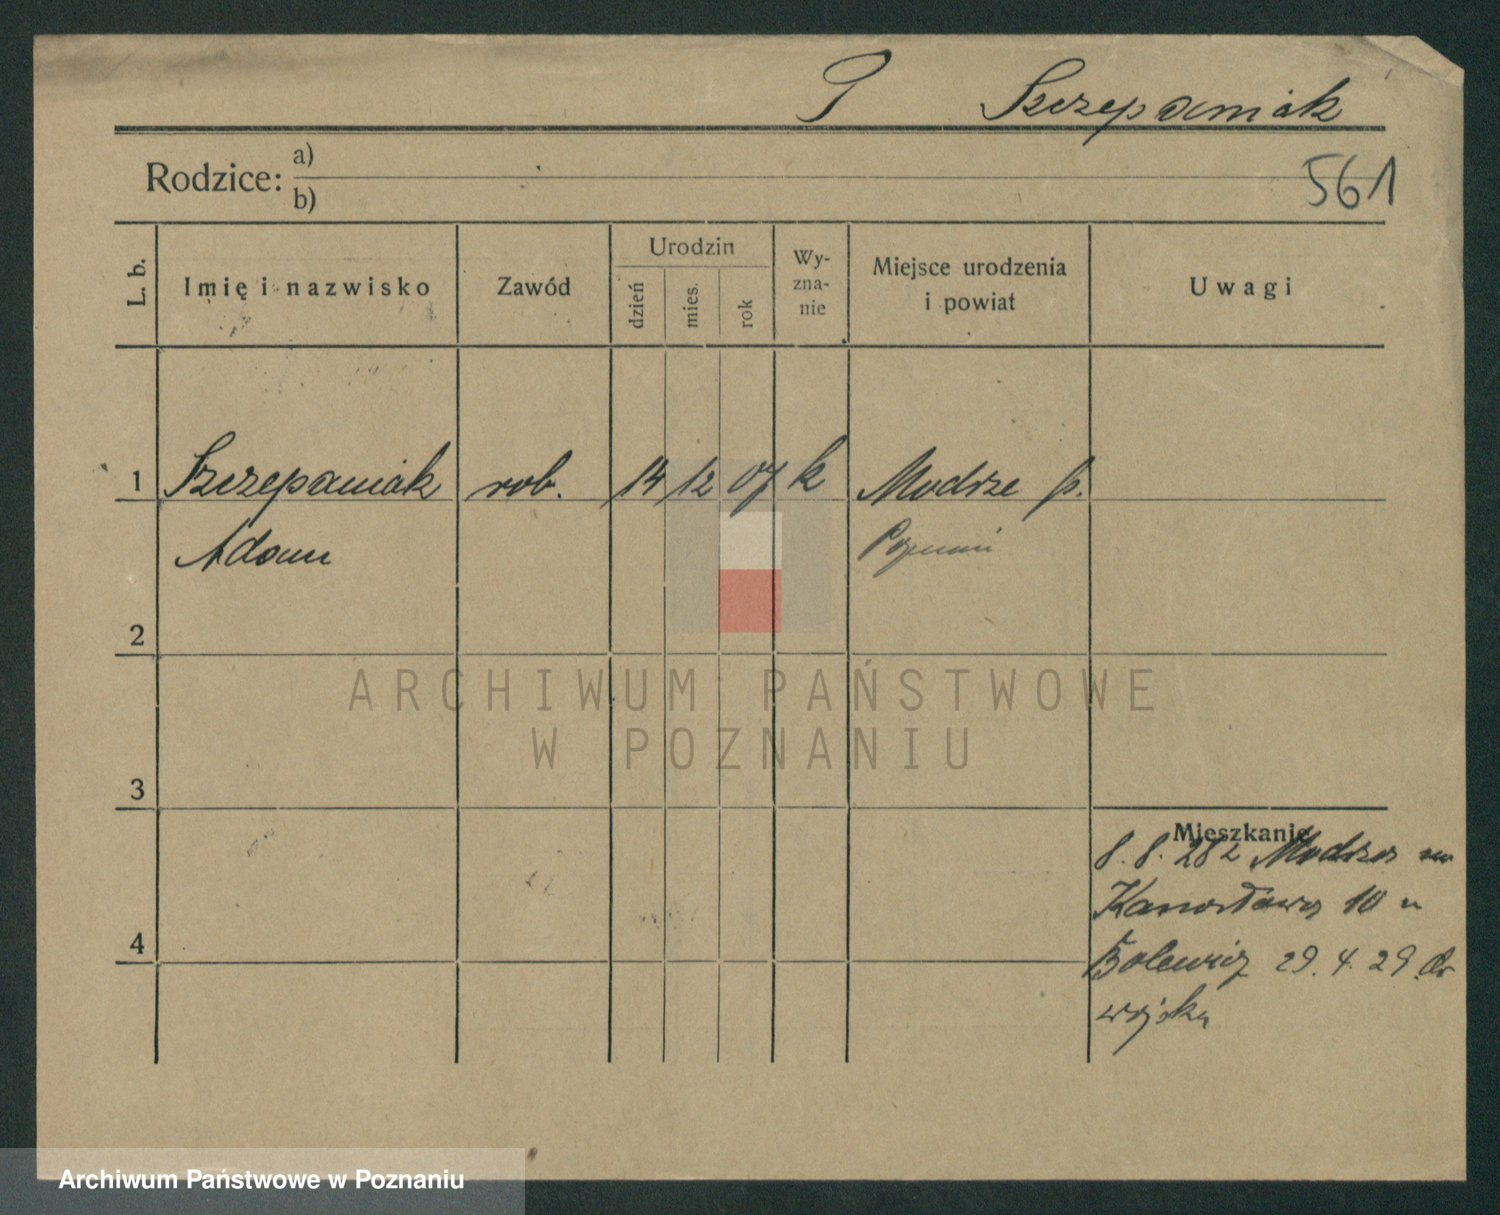 Szczepaniak
561
Rodzice: a)
b)
L. b.
Imię i nazwisko
Zawód
Urodzin
dzień
mies.
rok
Wy-
zna-
nie
Miejsce urodzenia
i powiat
Uwagi
1 Szczepaniak rob. 14 12 07 k Modrze p.
Adam Poznań
2
ARCHIWUM PAŃSTWOWE
W POZNANIU
3
Mieszkanie
8. 8. 28 z Modrza
10
29. 4. 29 do
wojska
4
Archiwum Państwowe w Poznaniu